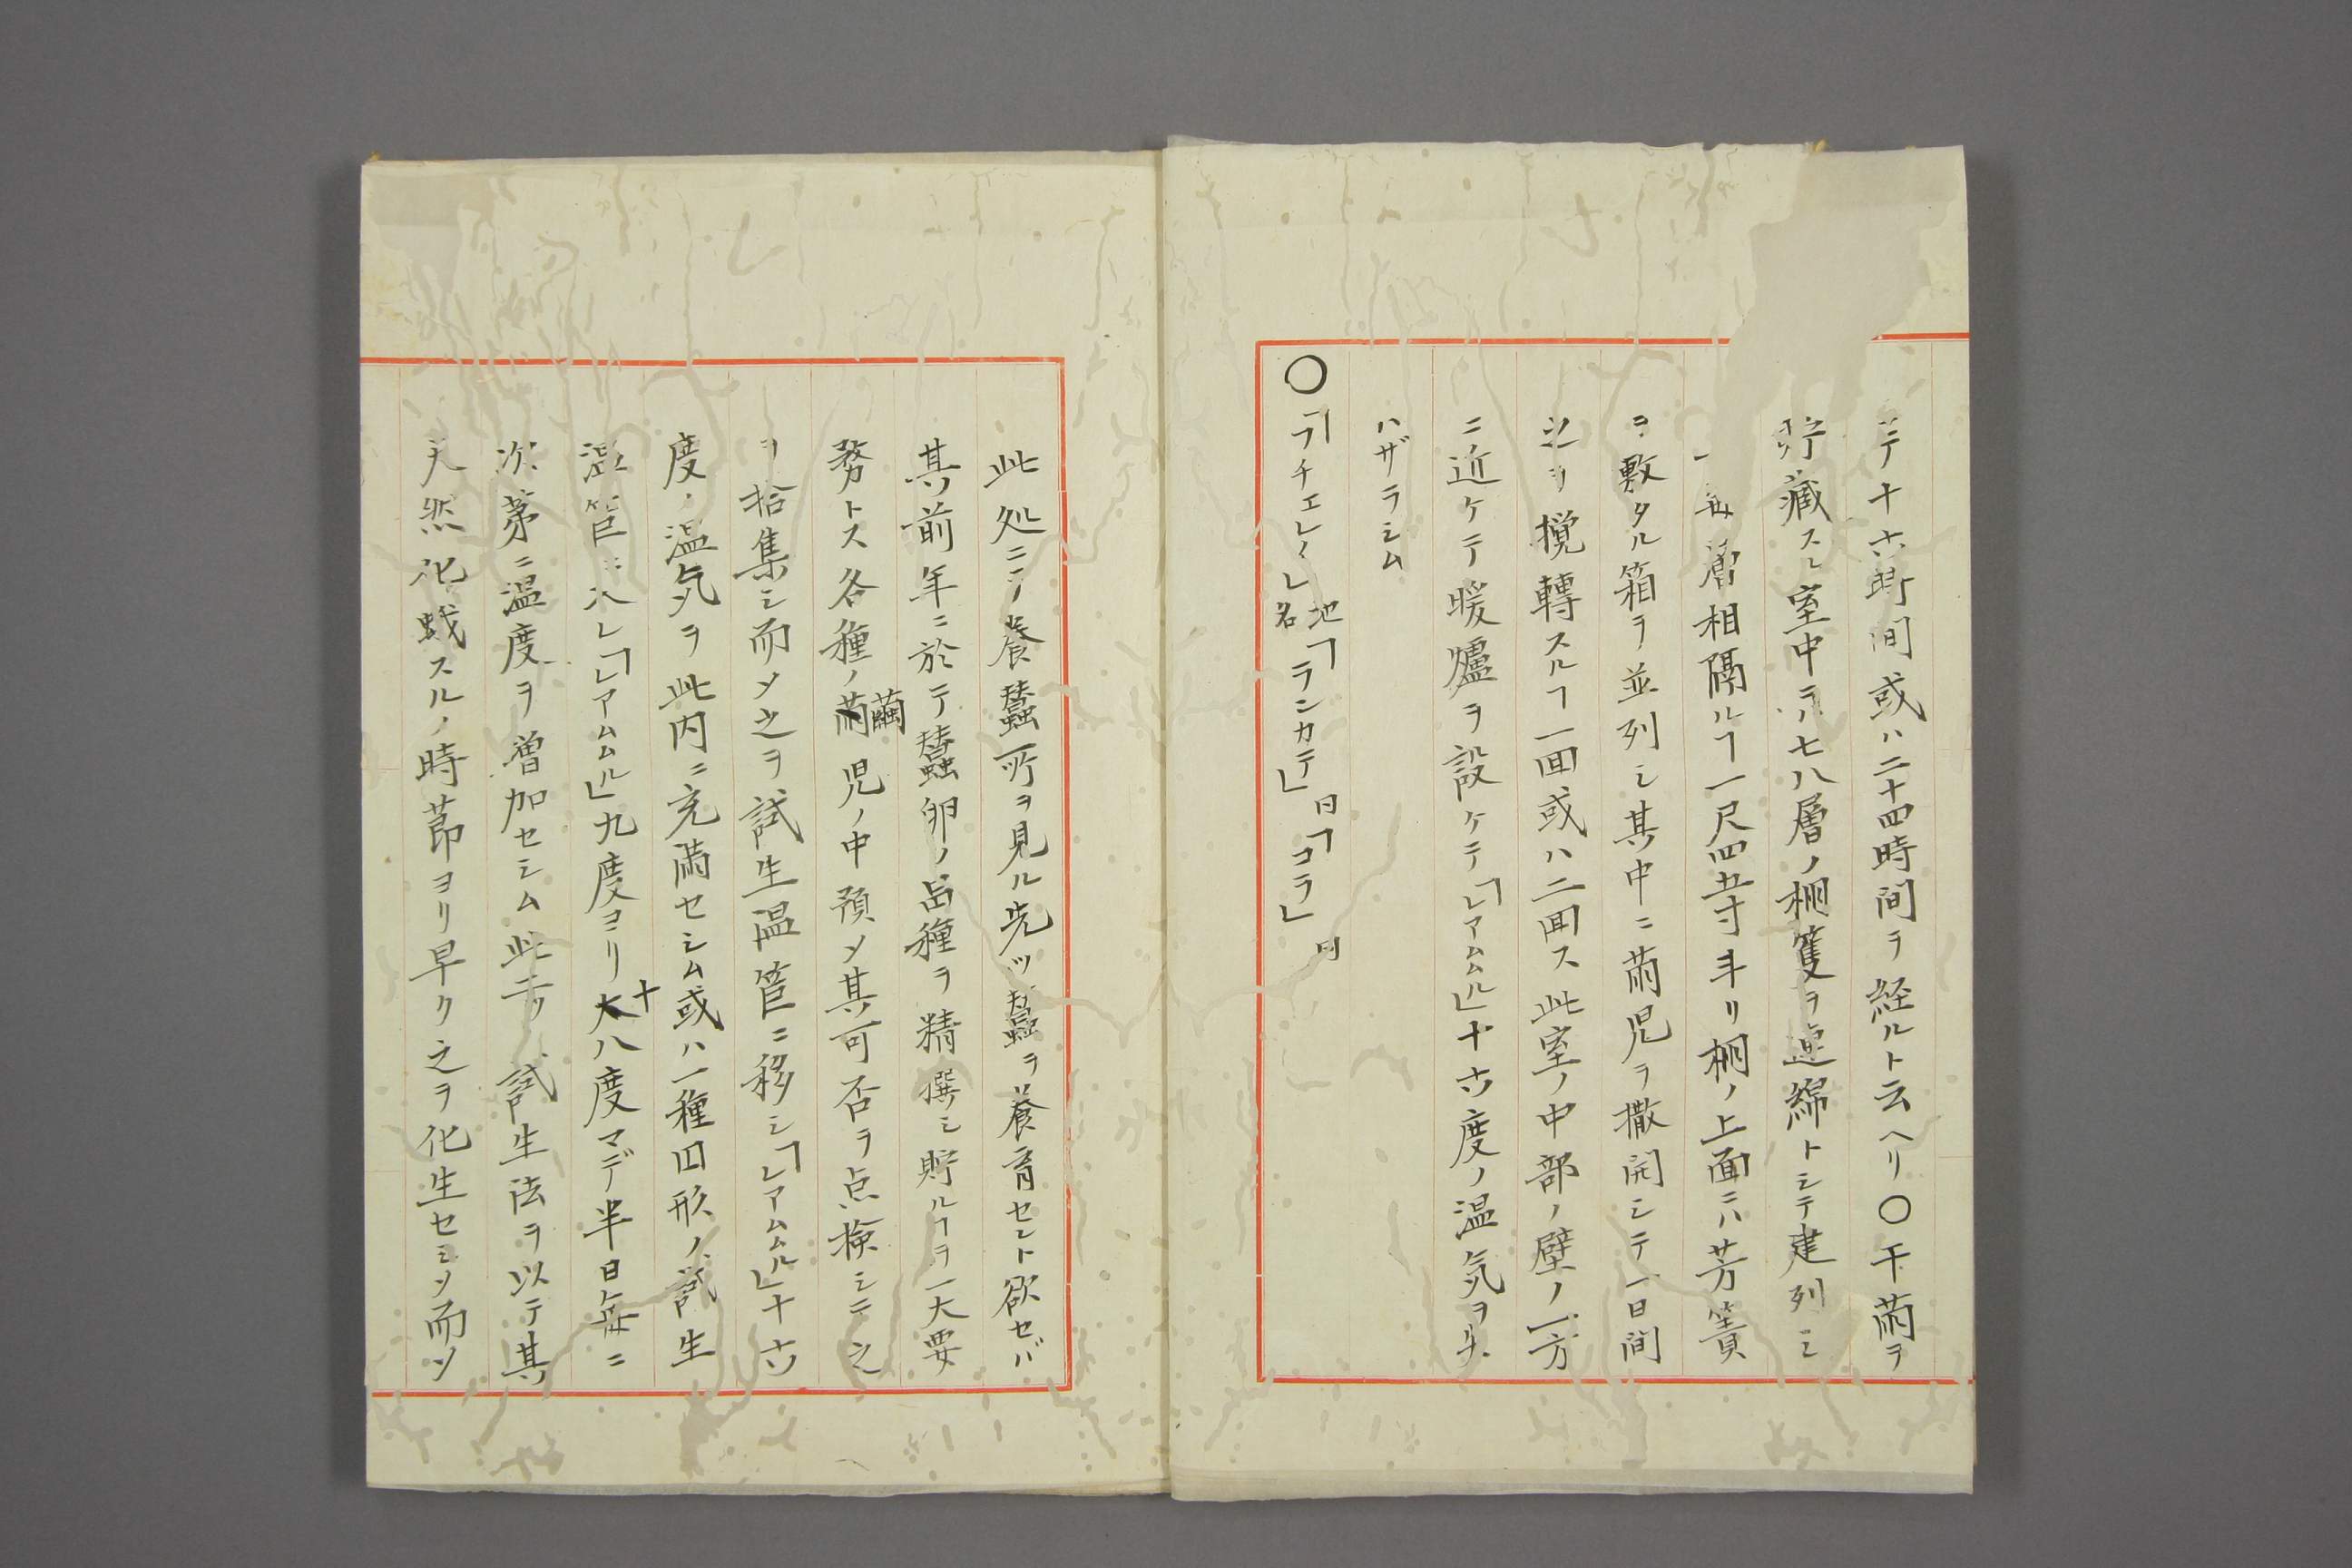 ニテ十六時間或ハ二十四時間ヲ経ルト云ヘリ〇干繭ヲ
貯蔵スル室中ニハ七八層ノ棚篗ヲ連綿トシテ建列シ
毎層相隔ルヿ一尺四五寸斗リ棚ノ上面ニハ芳簀
ヲ敷タル箱ヲ並列シ其中ニ繭児ヲ撒開シテ一日間
之ヲ攪轉スルヿ一回或ハ二回ス此室ノ中部ノ壁ノ一方
ニ近ケテ暖爐ヲ設ケテ「レアムムル」十六度ノ温気ヲ失
ハザラシム
〇「フチエレイ」地名「ランカテ」同「コラ」同
此処ニテ養蠶所ヲ見ル先ツ蠶ヲ養育セント欲セバ
其前年ニ於テ蠶卵ノ品種ヲ精撰シ貯ルヿヲ一大要
務トス各種ノ繭児ノ中預メ其可否ヲ点検シテ之
ヲ拾集シ而メ之ヲ試生温筐ニ移シ「レアムムル」十六
度ノ温気ヲ此内ニ充満セシム或ハ一種同形ノ試生
温筐ニ入レ「レアムムル」九度ヨリ十八度マデ半日毎ニ
次第ニ温度ヲ増加セシム此二ツノ試生法ヲ以テ其
天然化蛾スルノ時節ヨリ早ク之ヲ化生セシメ而メ